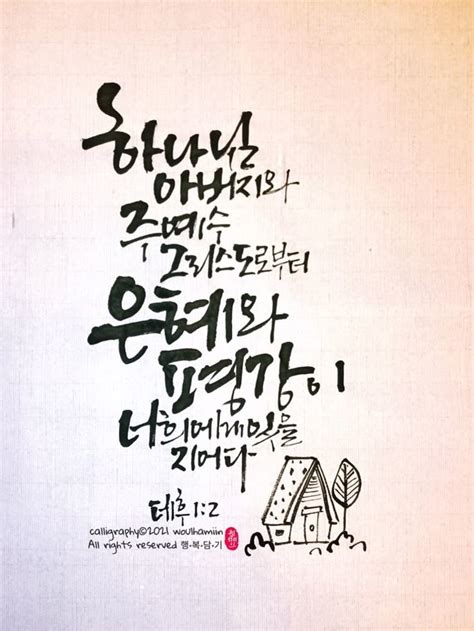 하나님
아버지와
주예수
그리스도로부터
은혜와
평강이
너희에게있을
지어다
데후1:2
calligraphy©2021 woulhamiin
All rights reserved 행•복•담•기